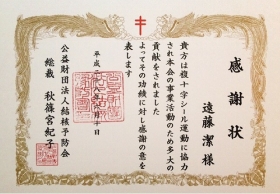 感謝状
遠藤潔様
貴方は複十字シール運動に協力
され本会の事業活動のため多大の
貢献をされました
よってその功績に対し感謝の意を
表します
平成
公益財団法人結核予防会
総裁 秋篠宮紀子